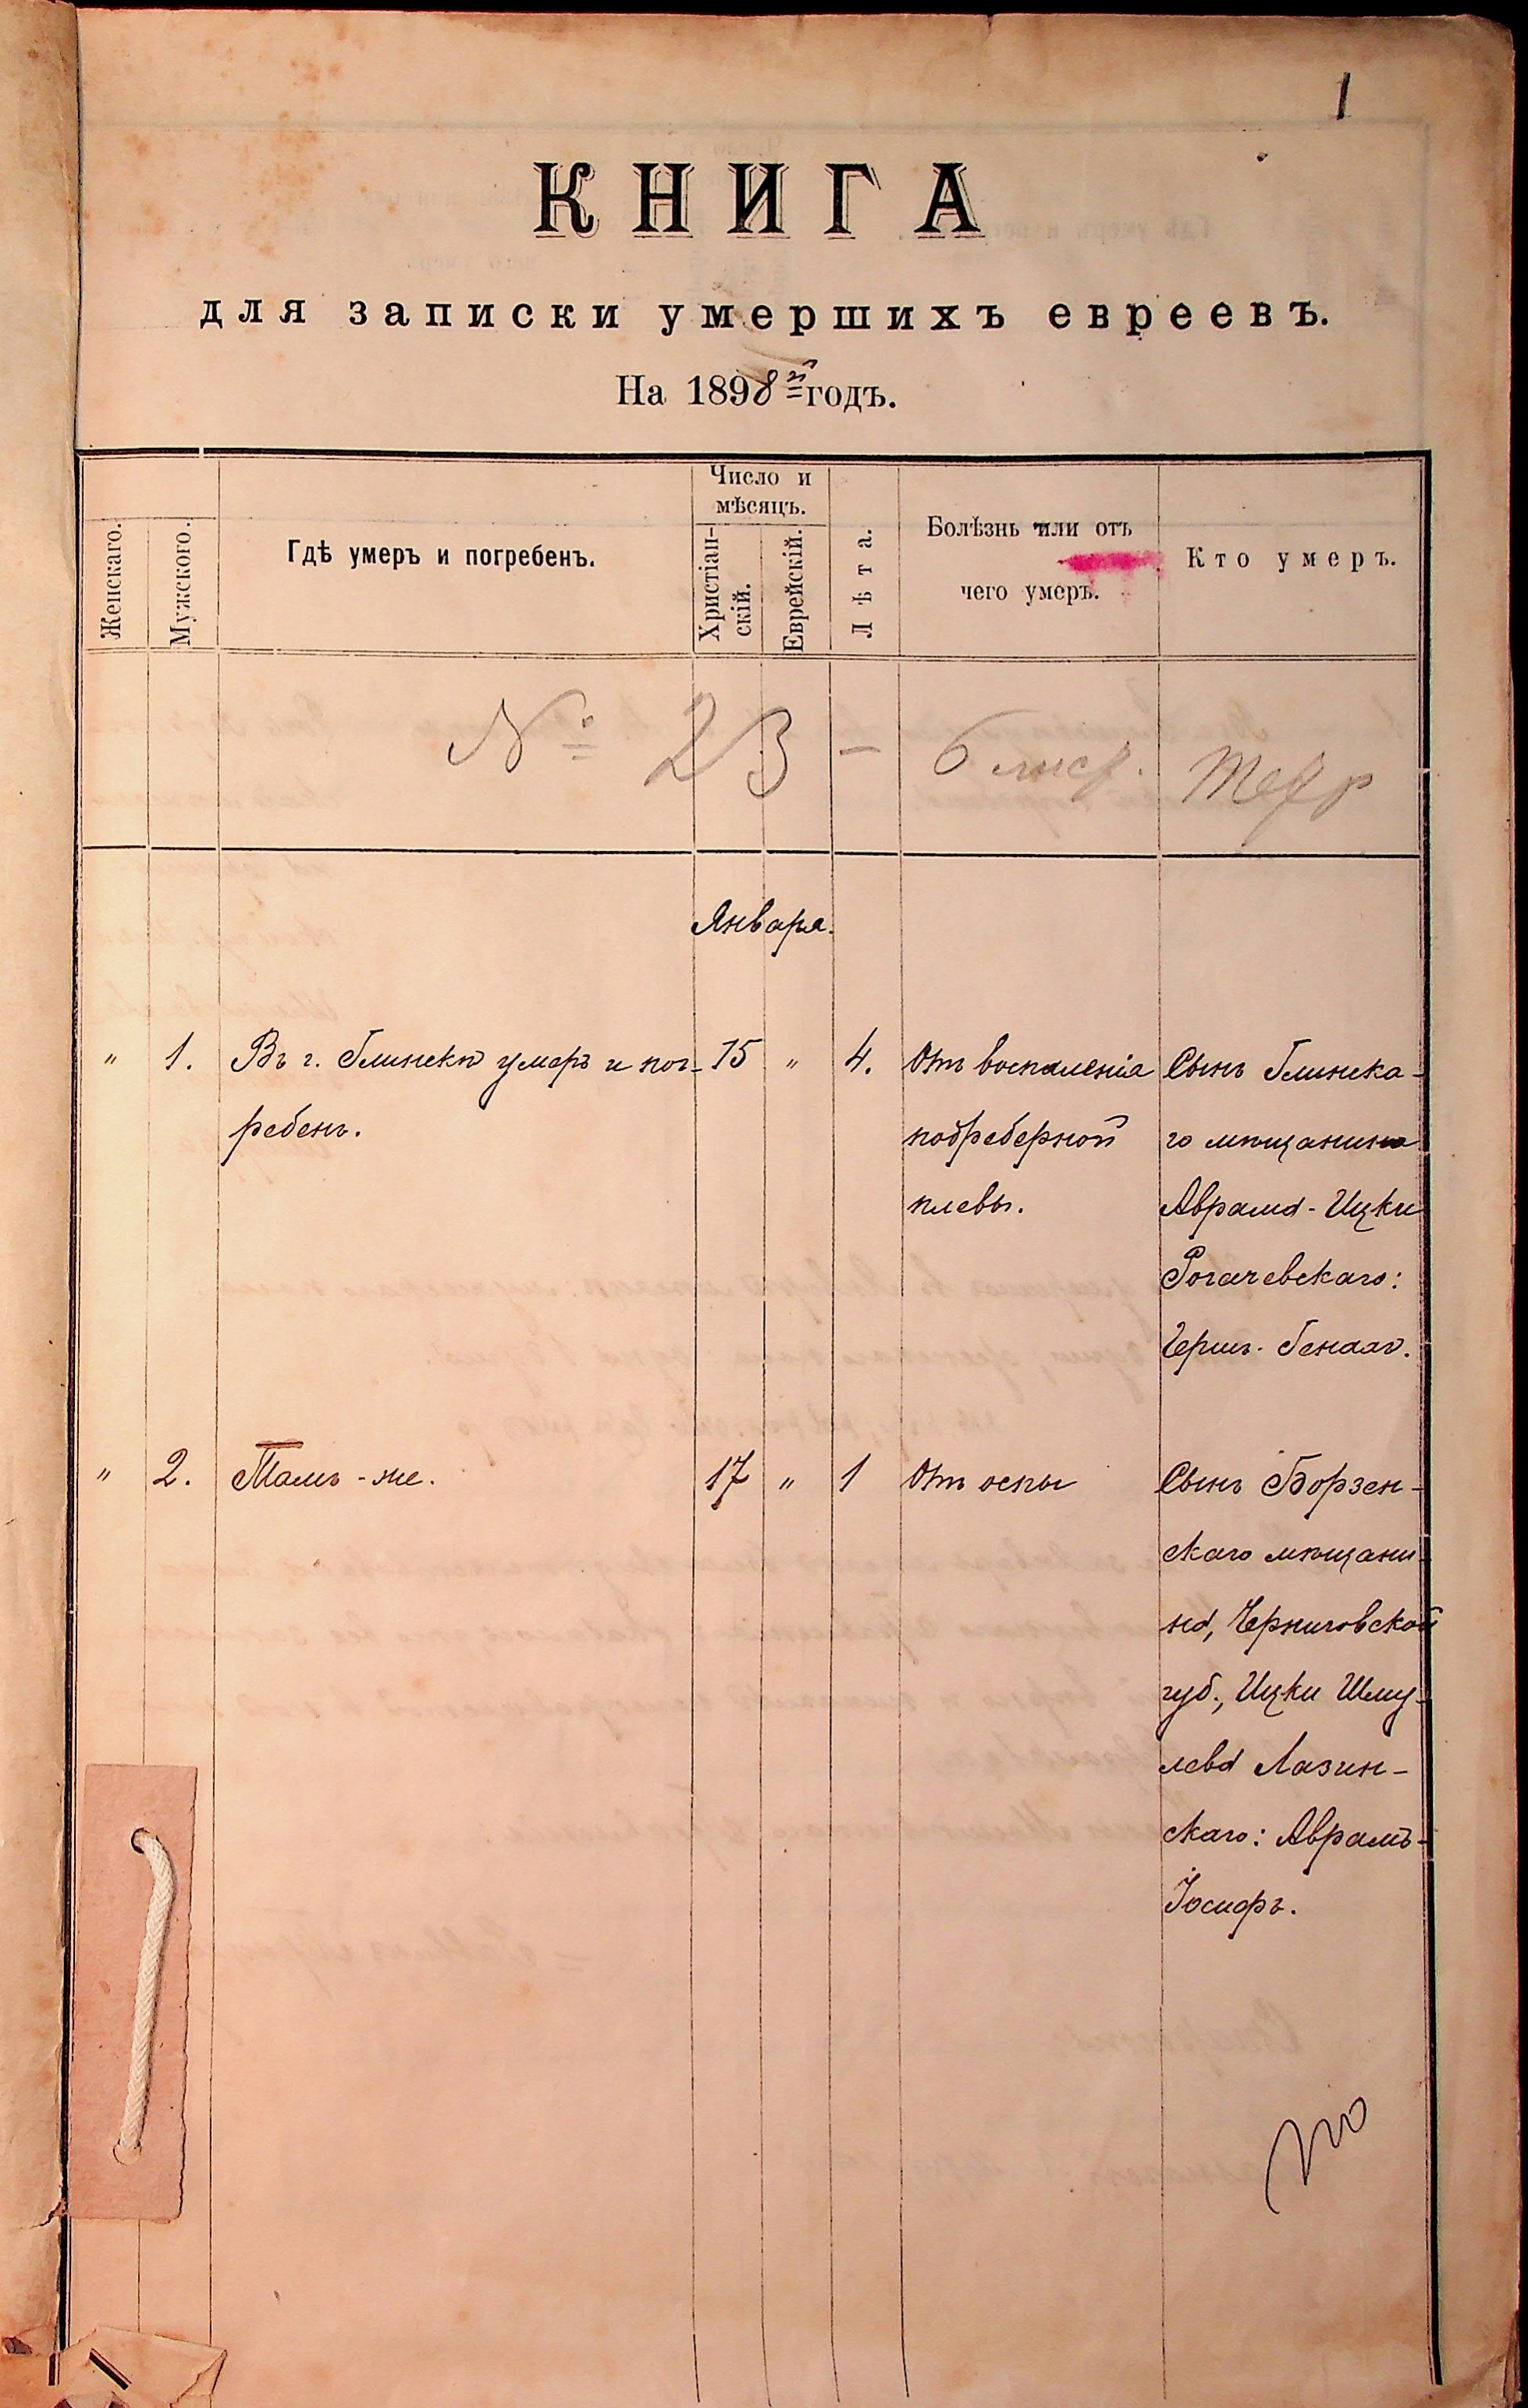 1
КНИГА
для записки умершихъ евреевъ.
На 1898 й годъ.
Женскаго.
Мужского.
Гдѣ умеръ и погребенъ.
Число и
мѣсяцъ.
Христіан-
скій.
Еврейскій.
Лѣта.
Болѣзнь или отъ
чего умеръ.
Кто умеръ.
№ 23 —
Января.
" 1. Въ г. Глинскѣ умеръ и пог- 15 " 4. Отъ воспаленія Сынъ Глинска-
ребенъ. подреберной го мѣщанина
плевы. Аврама-Ицки
Рогачевскаго:
Гершъ-
" 2. Тамъ-же. 17 " 1 Отъ оспы Сынъ Борзен-
скаго мѣщани-
на, Черниговской
губ., Ицки Шму-
лева Лазин-
скаго: Аврамъ-
Іосифъ.